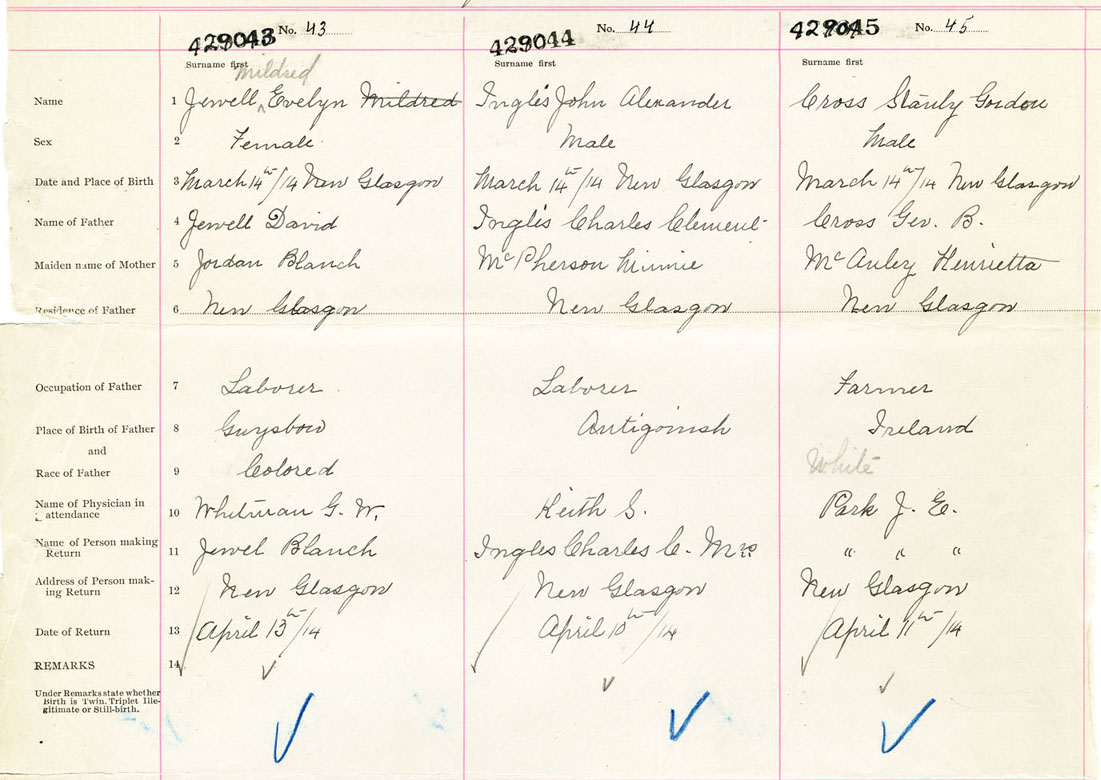 429043 No. 43 429044 No. 44 429045 No. 45
Surname first Surname first Surname first
Mildred
Name 1 Jewell Evelyn Mildred Inglis John Alexander Cross Stanly Gordon
Sex 2 Female Male Male
Date and Place of Birth 3 March 14th/14 New Glasgow March 14th/14 New Glasgow March 14th/14 New Glasgow
Name of Father 4 Jewell David Inglis Charles Clement Cross Geo. B.
Maiden name of Mother 5 Jordan Blanch McPherson Minnie McAuley Henrietta
Residence of Father 6 New Glasgow New Glasgow New Glasgow
Occupation of Father 7 Laborer Laborer Farmer
Place of Birth of Father 8 Guysboro Antigonish Ireland
and
Race of Father 9 Colored White
Name of Physician in
attendance 10 Whitman G. W. Keith S. Park J. E.
Name of Person making
Return 11 Jewel Blanch Ingles Charles C. Mrs " " "
Address of Person mak-
ing Return 12 New Glasgow New Glasgow New Glasgow
Date of Return 13 April 13th/14 April 10th/14 April 11th/14
REMARKS 14
Under Remarks state whether
Birth is Twin, Triplet Ille-
gitimate or Still-birth.